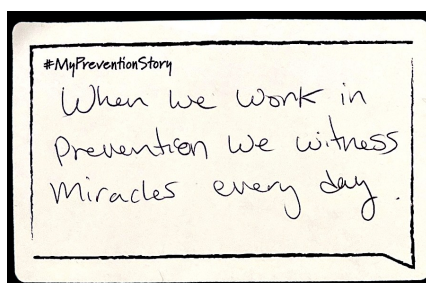 #MyPreventionStory
When we work in
Prevention we witness
Miracles every day.